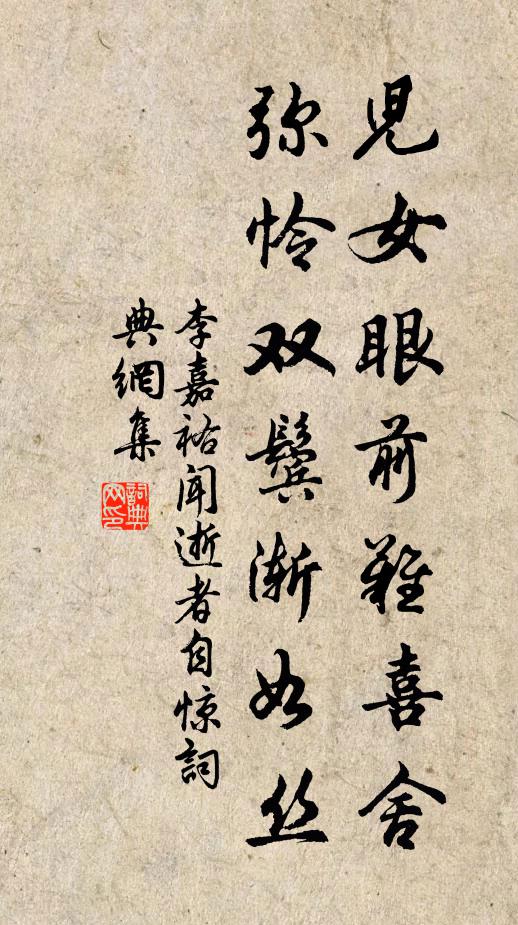 児女眼前難喜舍
弥怜双鬓渐如丝
李嘉祐闻逝者自惊詞
典網集
詞典
网印